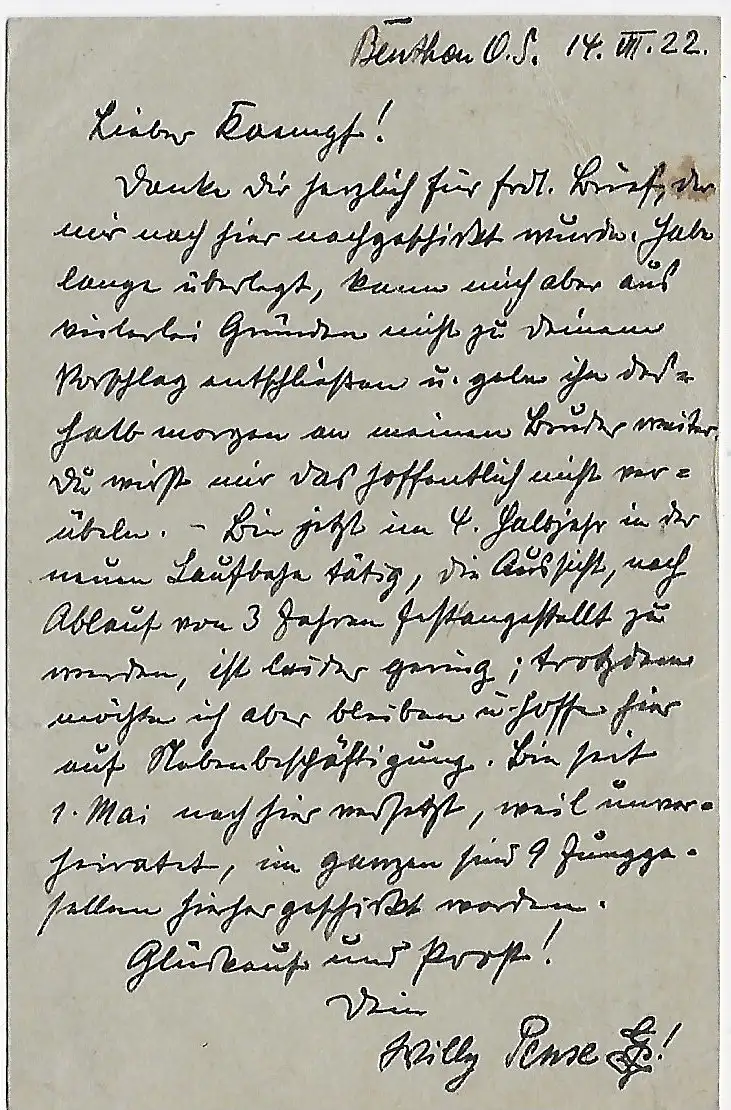 Beuthen O.S. 14. VII. 22.
Lieber Kaempf!
Danke Dir herzlich für frdl. Brief, der
mir nach hier nachgeschickt wurde. Habe
lange überlegt, kann mich aber aus
vielerlei Gründen nicht zu Deinem
Vorschlag entschließen u. gebe ihn des=
halb morgen an meinen Bruder weiter.
Du wirst mir das hoffentlich nicht ver=
übeln. – Bin jetzt im 4. Halbjahr in der
neuen Laufbahn tätig, die Aussicht, nach
Ablauf von 3 Jahren festangestellt zu
werden, ist leider gering; trotzdem
möchte ich aber bleiben u. hoffe hier
auf Nebenbeschäftigung. Bin seit
1. Mai nach hier versetzt, weil unver=
heiratet, im ganzen sind 9 Jungge=
sellen hierher geschickt worden.
Glückauf und Prost!
Dein
Willy Pense